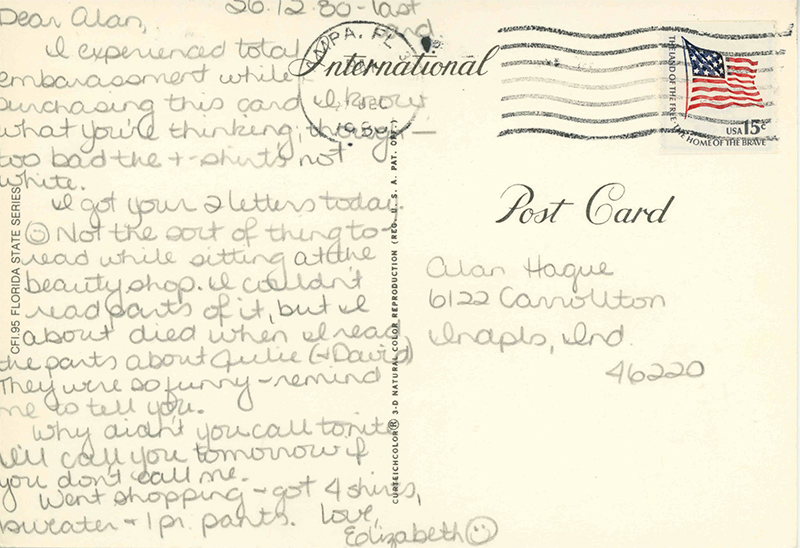 26.12.80-last card.
Dear Alan,
I experienced total
embarassment while
purchasing this card. I know
what you're thinking, though -
too bad the t-shirts not
white.
I got your 2 letters today.
☺ Not the sort of thing to
read while sitting at the
beauty shop. I couldn't
read parts of it, but I
about died when I read
the parts about Julie (+David)
They were so funny - remind
me to tell you.
Why didn't you call tonite
I'll call you tomorrow if
you don't call me.
Went shopping - got 4 shirts,
sweater + 1 pr. pants. Love,
Elizabeth ☺
CFI.95 FLORIDA STATE SERIES
CURTEICHCOLOR® 3-D NATURAL COLOR REPRODUCTION (REG. U. S. A. PAT. OFF.)
International
TAMPA, FL
DEC
THE LAND OF THE FREE, THE HOME OF THE BRAVE
USA 15c
Post Card
Alan Hague
6122 Carrollton
Indpls, Ind.
46220